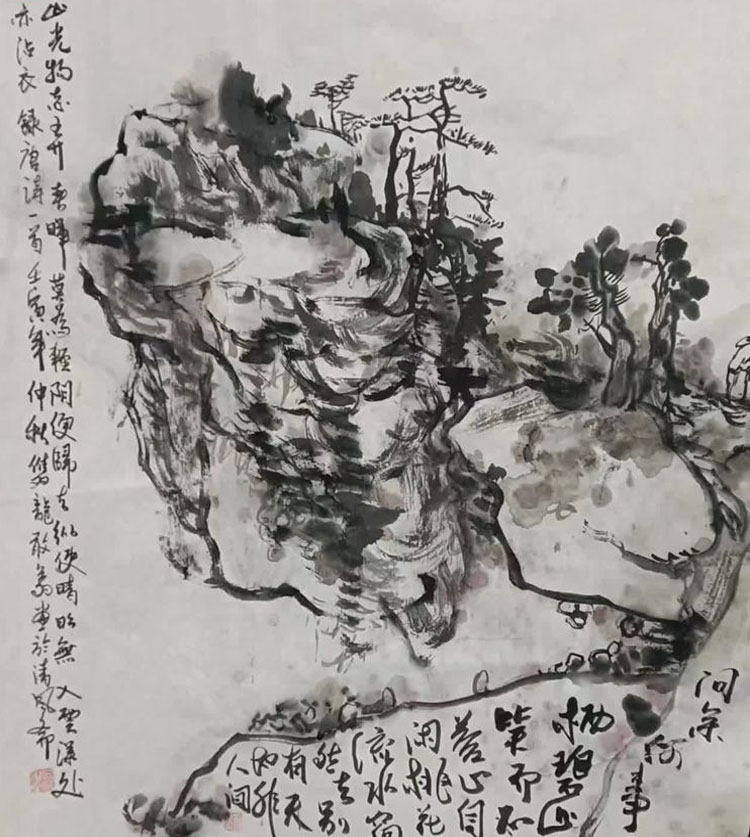 问余何事
栖碧山
笑而不
答心自
闲桃花
流水窅
然去别
有天
地非
人间
山光物态弄春晖莫为轻阴便歸去纵使晴明無入雲深处
亦沾衣录唐诗一首壬寅年仲秋龍於清风斋